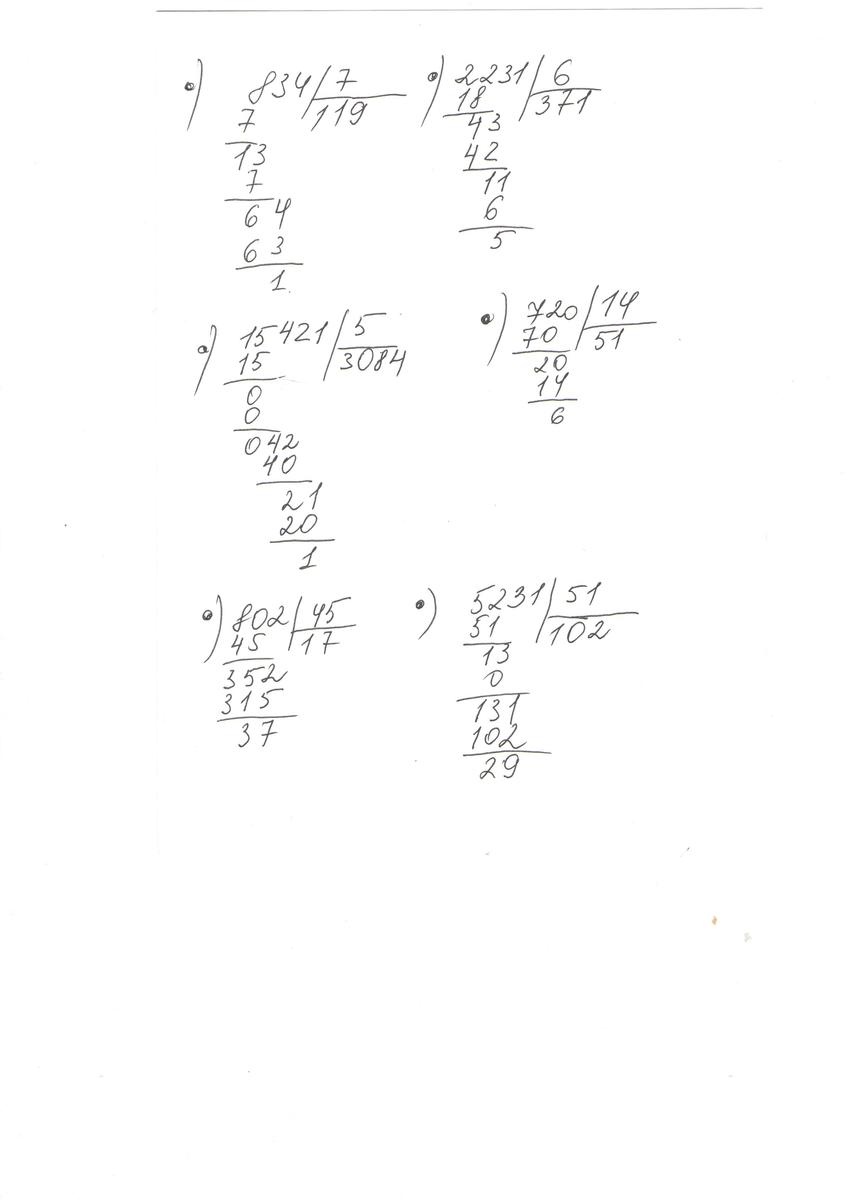 •) 834 | 7
7 119
13
7
64
63
1.
•) 2231 | 6
18 371
43
42
11
6
5
•) 15421 | 5
15 3084
0
0
042
40
21
20
1
•) 720 | 14
70 51
20
14
6
•) 802 | 45
45 17
352
315
37
•) 5231 | 51
51 102
13
0
131
102
29